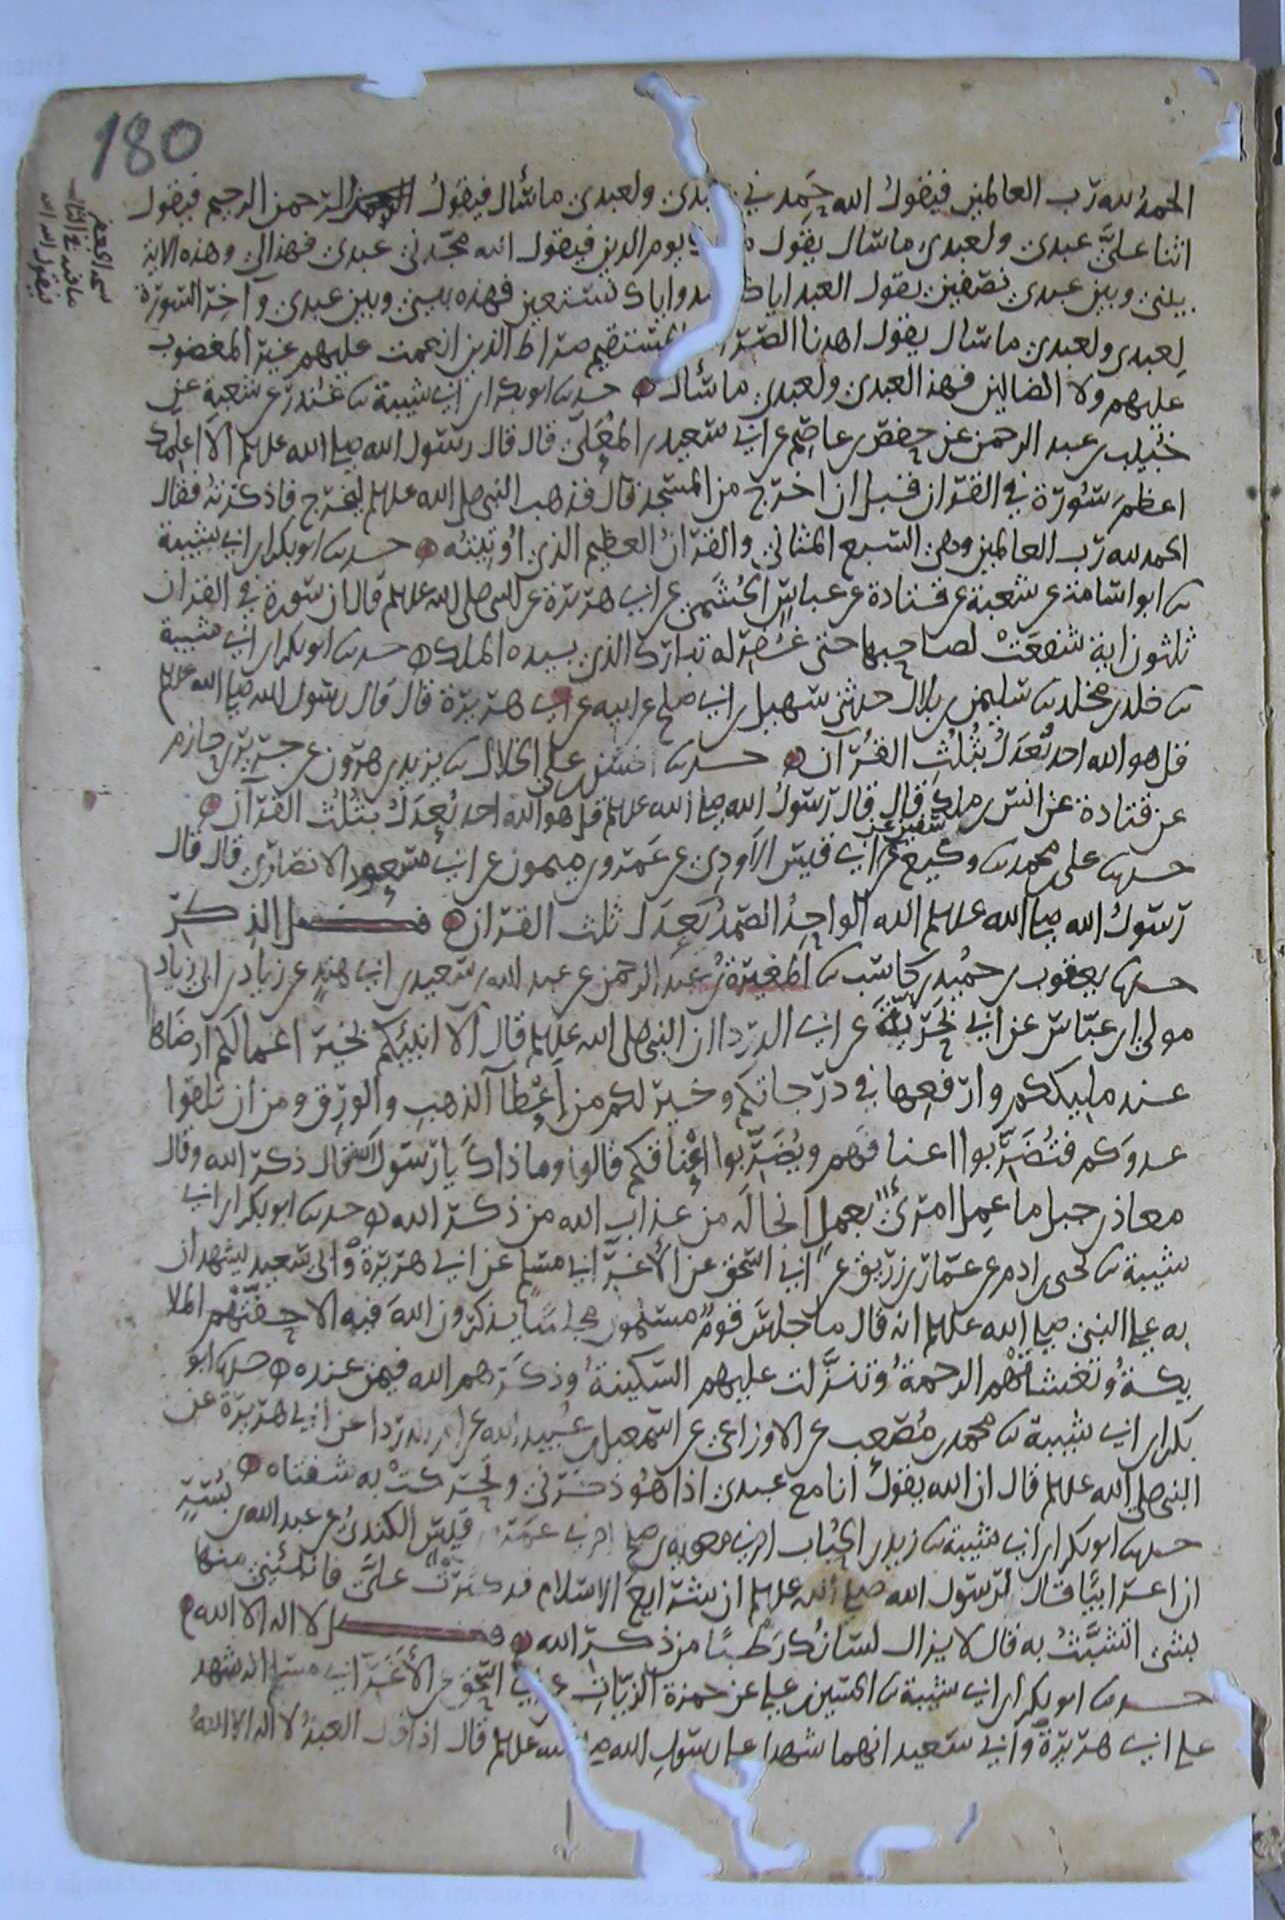 180
الحمد لله رب العالمين فيقول الله حمدني عبدي ولعبدي ما سأل فيقول الرحمن الرحيم فيقول
اثنا علي عبدي ولعبدي ما سأل يقول يوم الدين فيقول الله مجدني عبدي فهذا لي وهذه الاية
بيني وبين عبدي نصفين يقول العبد اياك نعبد واياك نستعين فهذه بيني وبين عبدي وآخر السورة
لعبدي ولعبدي ما سأل يقول اهدنا الصراط المستقيم صراط الذين انعمت عليهم غير المغضوب
عليهم ولا الضالين فهذا لعبدي ولعبدي ما سأل حدثنا ابو بكر بن ابي شيبة ثنا غندر عن شعبة عن
خبيب بن عبد الرحمن عن حفص بن عاصم عن ابي سعيد بن المعلى قال قال رسول الله صلى الله عليه وسلم الا اعلمك
اعظم سورة في القران قبل ان اخرج من المسجد قال فذهب النبي صلى الله عليه وسلم ليخرج فاذكرته فقال
الحمد لله رب العالمين وهي السبع المثاني والقرآن العظيم الذي اوتيته حدثنا ابو بكر بن ابي شيبة
ثنا ابو اسامة عن شعبة عن قتادة عن عباس الجشمي عن ابي هريرة عن النبي صلى الله عليه وسلم قال ان سورة في القران
ثلثون اية شفعت لصاحبها حتى غفر له تبارك الذي بيده الملك حدثنا ابو بكر بن ابي شيبة
ثنا خلد بن مخلد ثنا سليمن بن بلال حدثني سهيل بن ابي صلح عن ابيه عن ابي هريرة قال قال رسول الله صلى الله عليه وسلم
قل هو الله احد تعدل بثلث القرآن حدثنا الحسن بن علي الخلال ثنا يزيد بن هرون عن جرير بن حازم
عن قتادة عن انس بن ملك قال قال رسول الله صلى الله عليه وسلم قل هو الله احد تعدل بثلث القرآن
حدثنا علي بن محمد ثنا وكيع عن سفين عن ابي قيس الاودي عن عمرو بن ميمون عن ابي مسعود الانصاري قال قال
رسول الله صلى الله عليه وسلم الله الواحد الصمد تعدل ثلث القران فضل الذكر
حدثنا يعقوب بن حميد بن كاسب ثنا المغيرة بن عبد الرحمن عن عبد الله بن سعيد بن ابي هند عن زياد بن ابي زياد
مولى ابن عباس عن ابي بحرية عن ابي الدردا ان النبي صلى الله عليه وسلم قال الا انبئكم بخير اعمالكم ارضاها
عند مليككم وارفعها في درجاتكم وخير لكم من إعطآ الذهب والورق ومن ان تلقوا
عدوكم فتضربوا اعناقهم ويضربوا اعناقكم قالوا وما ذاك يا رسول الله قال ذكر الله وقال
معاذ بن جبل ما عمل امرئ بعمل انجا له من عذاب الله من ذكر الله حدثنا ابو بكر بن ابي
شيبة ثنا يحيى بن ادم عن عمار بن رزيق عن ابي اسحق عن الاغر ابي مسلم عن ابي هريرة وابي سعيد يشهدان
به على النبي صلى الله عليه وسلم انه قال ما جلس قوم مسلمون مجلسا يذكرون الله فيه الا حفتهم الملا
يكة وتغشاهم الرحمة وتنزلت عليهم السكينة وذكرهم الله فيمن عنده حدثنا ابو
بكر بن ابي شيبة ثنا محمد بن مصعب عن الاوزاعي عن اسمعيل بن عبيد الله عن ام الدردا عن ابي هريرة عن
النبي صلى الله عليه وسلم قال ان الله يقول انا مع عبدي اذا هو ذكرني وتحركت به شفتاه
حدثنا ابو بكر بن ابي شيبة ثنا زيد بن الحباب اخبرني معويه بن صلح اخبرني عمرو بن قيس الكندي عن عبد الله بن بسر
ان اعرابيا قال لرسول الله صلى الله عليه وسلم ان شرايع الاسلام قد كثرت علي فانبئني منها
بشي اتشبث به قال لا يزال لسانك رطبا من ذكر الله فضل لا اله الا الله
حدثنا ابو بكر بن ابي شيبة ثنا الحسين بن علي عن حمزة الزيات عن ابي اسحق عن الاغر ابي مسلم انه شهد
على ابي هريرة وابي سعيد انهما شهدا على رسول الله صلى الله عليه وسلم قال اذا قال العبد لا اله الا الله